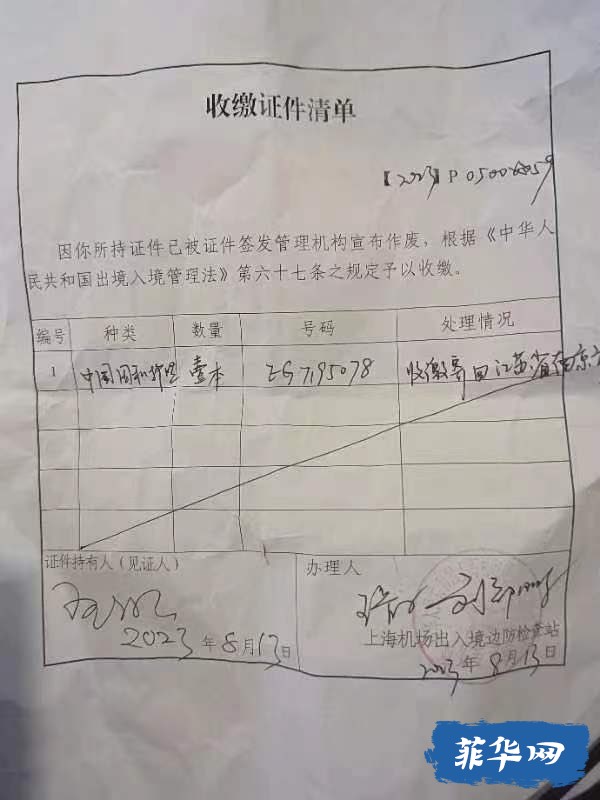 收缴证件清单
【2023】P
因你所持证件已被证件签发管理机构宣布作废，根据《中华人
民共和国出境入境管理法》第六十七条之规定予以收缴。
编号 种类 数量 号码 处理情况
1 中国 壹本 EG7195078 收缴寄回江苏省南京
证件持有人（见证人） 办理人
上海机场出入境边防检查站
2023年8月13日 2023年8月13日
菲华网